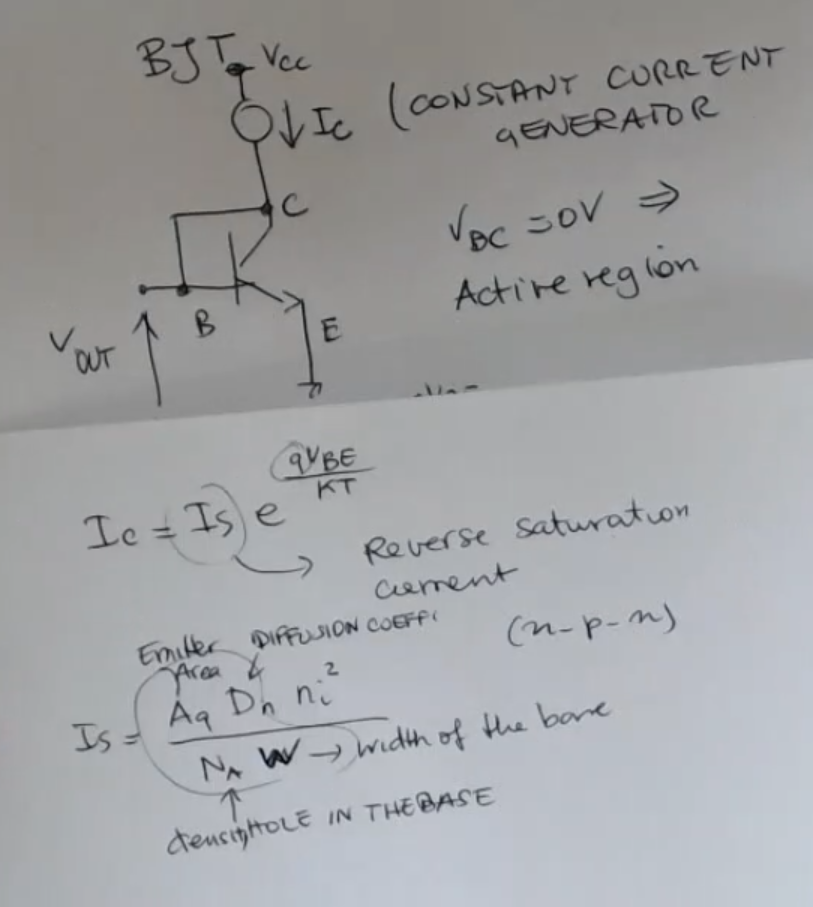 BJT Vcc
↓ Ic (CONSTANT CURRENT
GENERATOR
C
V_BC = 0V ⇒
Active region
B
E
V_OUT
Ic = Is e^(qV_BE/KT)
Reverse saturation
current
Emitter DIFFUSION COEFF
Area
(n-p-n)
Is = Aq Dn ni² / N_A W → width of the base
density HOLE IN THE BASE